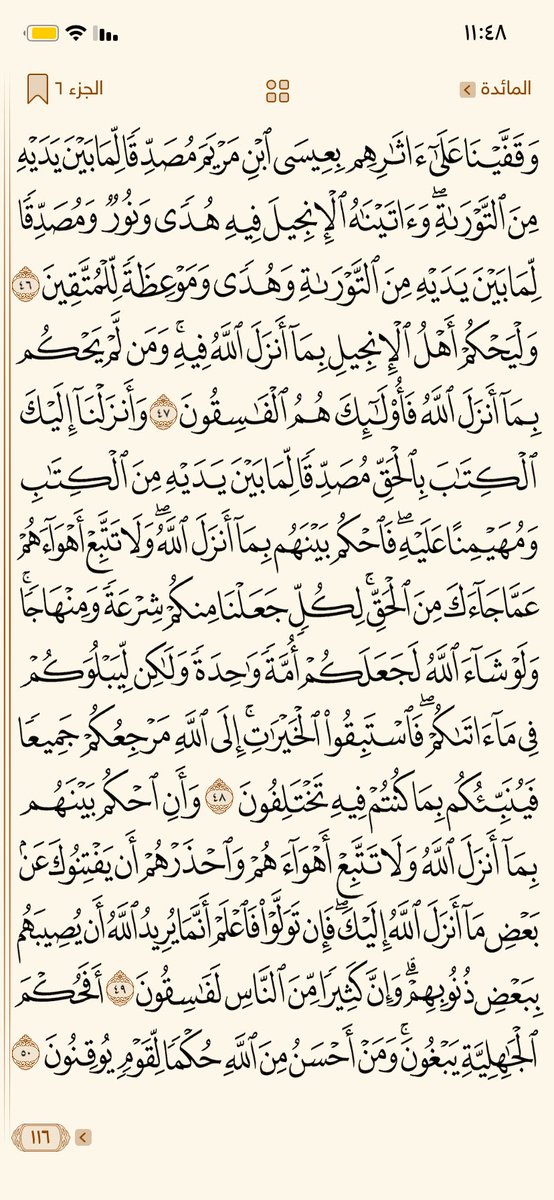 ١١:٤٨
المائدة
الجزء ٦
وَقَفَّيْنَا عَلَىٰٓ ءَاثَٰرِهِم بِعِيسَى ٱبْنِ مَرْيَمَ مُصَدِّقًا لِّمَا بَيْنَ يَدَيْهِ
مِنَ ٱلتَّوْرَىٰةِۖ وَءَاتَيْنَٰهُ ٱلْإِنجِيلَ فِيهِ هُدًى وَنُورٌ وَمُصَدِّقًا
لِّمَا بَيْنَ يَدَيْهِ مِنَ ٱلتَّوْرَىٰةِ وَهُدًى وَمَوْعِظَةً لِّلْمُتَّقِينَ ٤٦
وَلْيَحْكُمْ أَهْلُ ٱلْإِنجِيلِ بِمَآ أَنزَلَ ٱللَّهُ فِيهِۚ وَمَن لَّمْ يَحْكُم
بِمَآ أَنزَلَ ٱللَّهُ فَأُو۟لَٰٓئِكَ هُمُ ٱلْفَٰسِقُونَ ٤٧ وَأَنزَلْنَآ إِلَيْكَ
ٱلْكِتَٰبَ بِٱلْحَقِّ مُصَدِّقًا لِّمَا بَيْنَ يَدَيْهِ مِنَ ٱلْكِتَٰبِ
وَمُهَيْمِنًا عَلَيْهِۖ فَٱحْكُم بَيْنَهُم بِمَآ أَنزَلَ ٱللَّهُۖ وَلَا تَتَّبِعْ أَهْوَآءَهُمْ
عَمَّا جَآءَكَ مِنَ ٱلْحَقِّۚ لِكُلٍّ جَعَلْنَا مِنكُمْ شِرْعَةً وَمِنْهَاجًاۚ
وَلَوْ شَآءَ ٱللَّهُ لَجَعَلَكُمْ أُمَّةً وَٰحِدَةً وَلَٰكِن لِّيَبْلُوَكُمْ
فِى مَآ ءَاتَىٰكُمْۖ فَٱسْتَبِقُوا۟ ٱلْخَيْرَٰتِۚ إِلَى ٱللَّهِ مَرْجِعُكُمْ جَمِيعًا
فَيُنَبِّئُكُم بِمَا كُنتُمْ فِيهِ تَخْتَلِفُونَ ٤٨ وَأَنِ ٱحْكُم بَيْنَهُم
بِمَآ أَنزَلَ ٱللَّهُ وَلَا تَتَّبِعْ أَهْوَآءَهُمْ وَٱحْذَرْهُمْ أَن يَفْتِنُوكَ عَنۢ
بَعْضِ مَآ أَنزَلَ ٱللَّهُ إِلَيْكَۖ فَإِن تَوَلَّوْا۟ فَٱعْلَمْ أَنَّمَا يُرِيدُ ٱللَّهُ أَن يُصِيبَهُم
بِبَعْضِ ذُنُوبِهِمْۗ وَإِنَّ كَثِيرًا مِّنَ ٱلنَّاسِ لَفَٰسِقُونَ ٤٩ أَفَحُكْمَ
ٱلْجَٰهِلِيَّةِ يَبْغُونَۚ وَمَنْ أَحْسَنُ مِنَ ٱللَّهِ حُكْمًا لِّقَوْمٍ يُوقِنُونَ ٥٠
١١٦